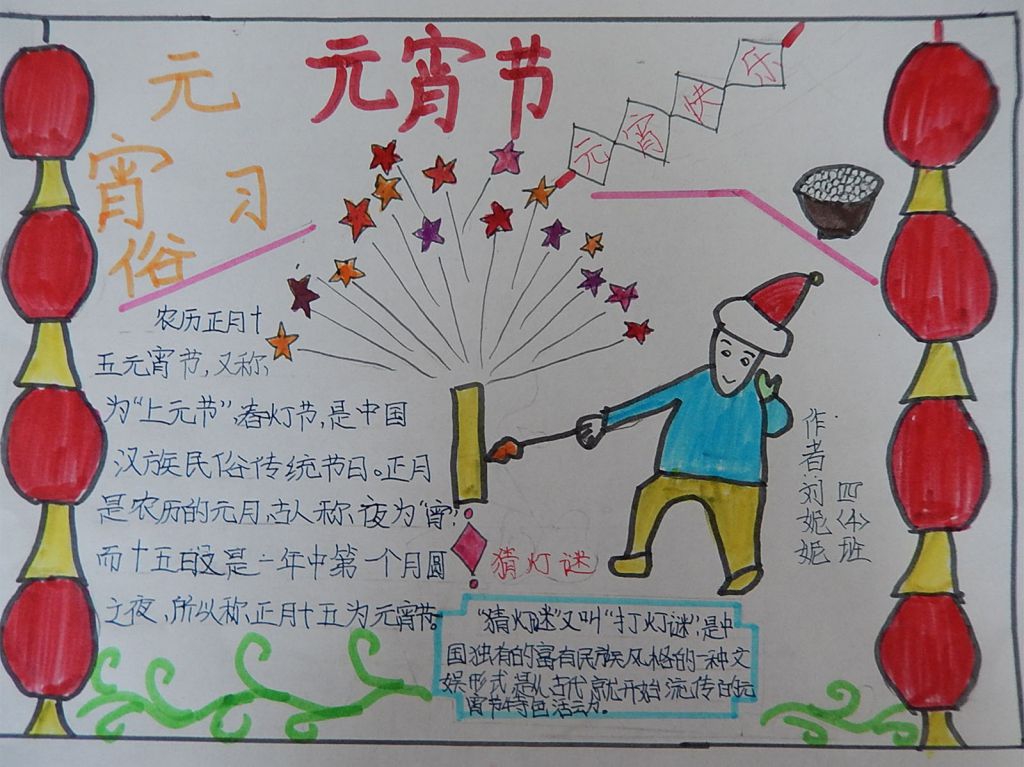 元宵节
元宵快乐
元
宵习
俗
农历正月十
五元宵节,又称
为“上元节”,春灯节,是中国
汉族民俗传统节日。正月
是农历的元月,古人称夜为“宵”,
而十五日又是一年中第一个月圆
之夜,所以称正月十五为元宵节。
作者:刘妮妮
四〈4〉班
猜灯谜
“猜灯谜”又叫“打灯谜”,是中
国独有的富有民族风格的一种文
娱形式,是从古代就开始流传的元
宵节特色活动。